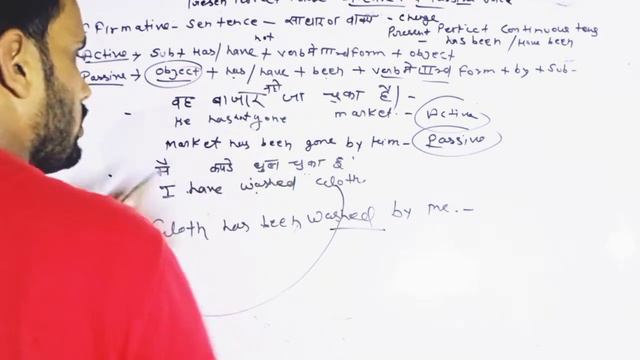 ffirmative - Sentence - साधारण वाक्य - charge
not
Present Perfect Continuous tens
- has been / Have been
Active → Sub + Has/have + verb की third form + object
Passive → Object + has/have + been + verb की third form + by + Sub -
नही
- वह बाजार जा चुका है।
He has not gone market. - Active
Market has been gone by him - Passive
मै कपडे धुल चुका हूं
I have washed cloth.
Cloth has been washed by me. -